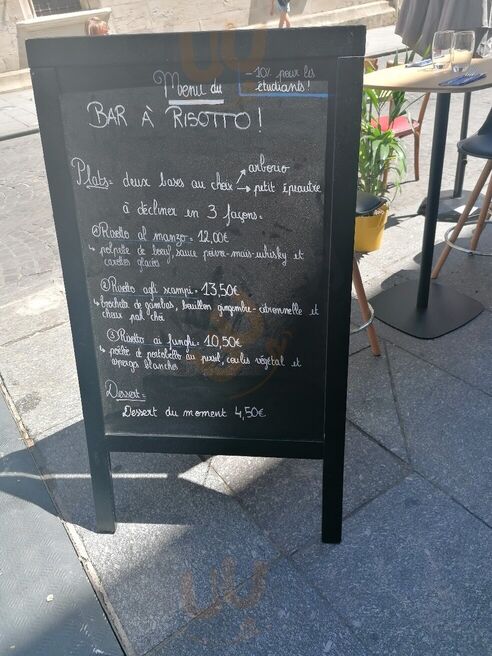 Menu du
-10% pour les
étudiants!
BAR À RISOTTO!
Plats: deux bases au choix → arborio
→ petit épeautre
à décliner en 3 façons:
① Risotto al manzo: 12,00€
↳ polpette de boeuf, sauce poivre-maïs-whisky et
carottes glacées
② Risotto agli scampi: 13,50€
↳ brochette de gambas, bouillon gingembre-citronnelle et
choux pak choï
③ Risotto ai funghi: 10,50€
↳ poêlée de portobello au persil, coulis végétal et
asperges blanches
Dessert:
Dessert du moment 4,50€